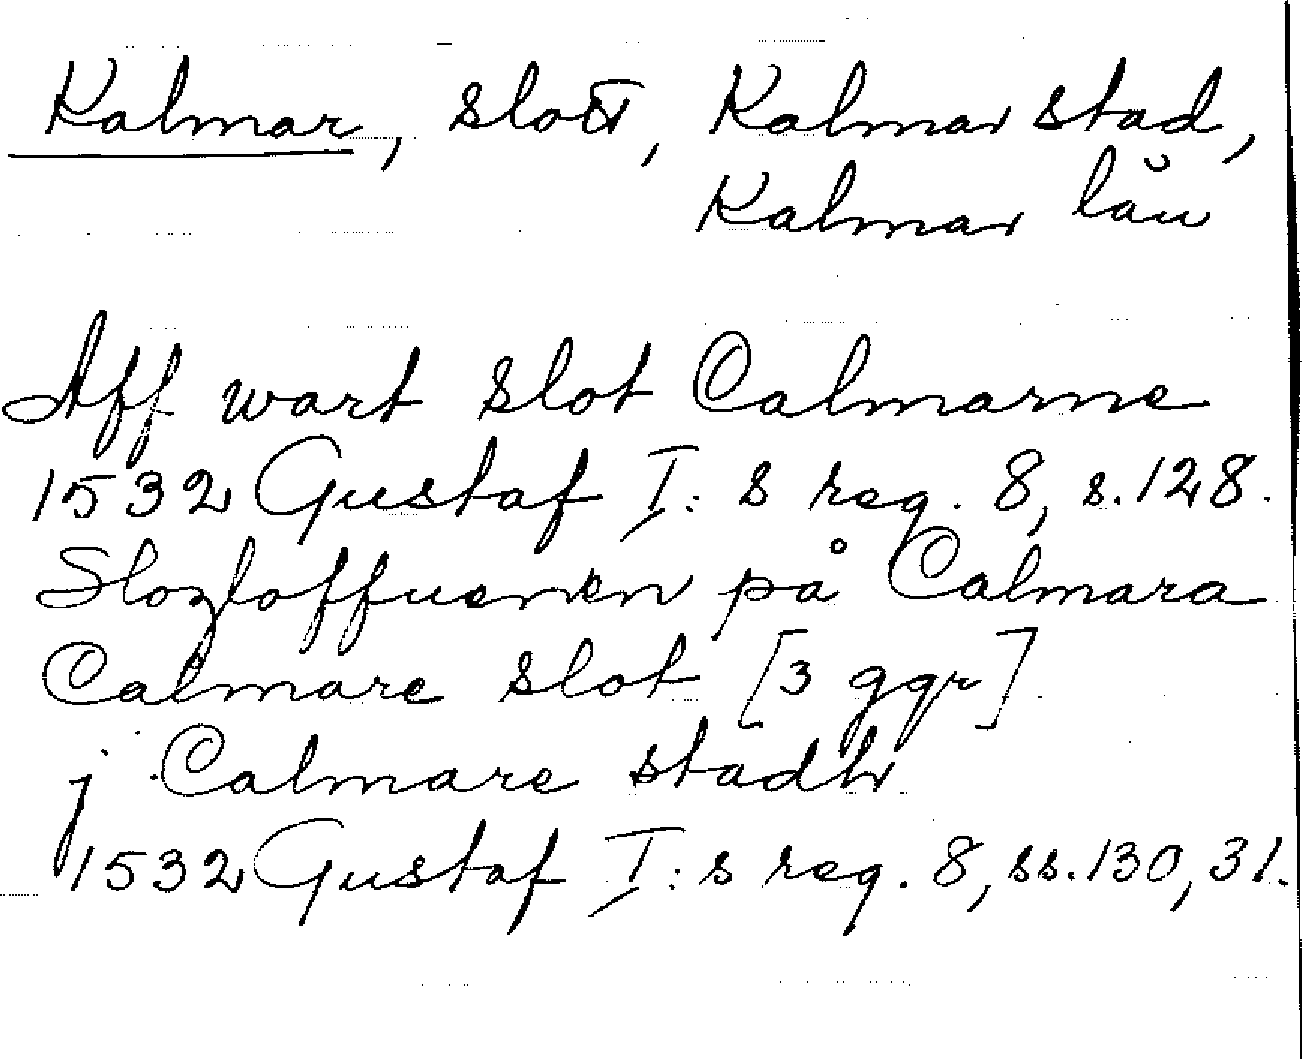 Kalmar, slott, Kalmar stad,
Kalmar län
Aff wart slot Calmarne
1532 Gustaf I:s reg. 8, s. 128.
Slozloffuenen på Calmara
Calmare slot [3 ggr]
j Calmare stadh
1532 Gustaf I:s reg. 8, ss. 130, 31.